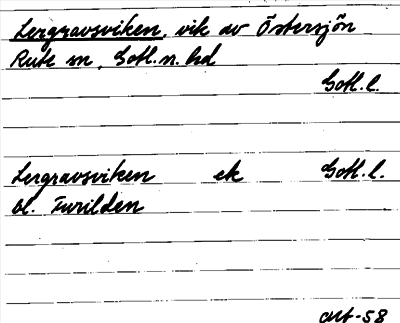 Lergravsviken, vik av Östersjön
Rute sn, Gotl. n. hd
Gotl. l.
Lergravsviken ek Gotl. l.
bl. Furilden
-58